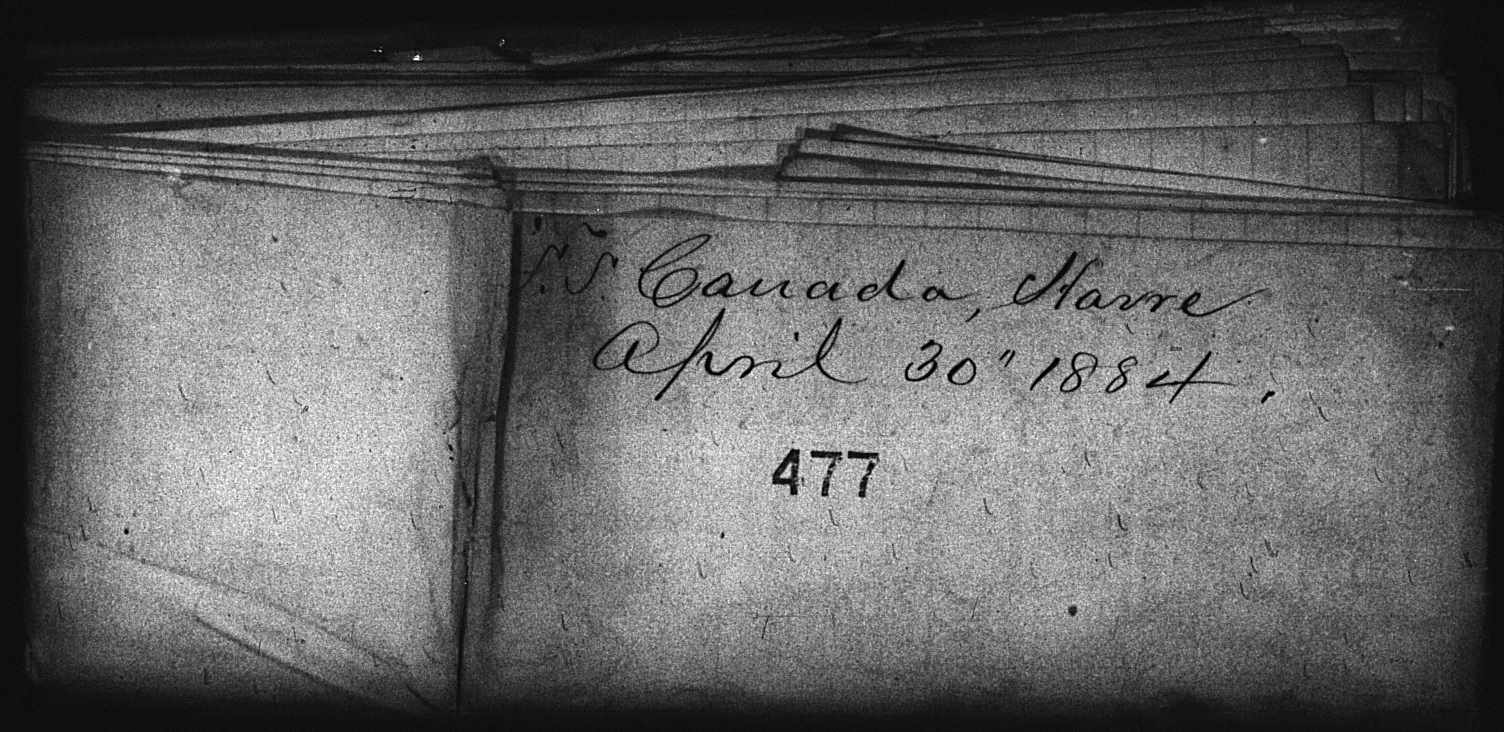 S.S. Canada, Havre
April 30" 1884.
477